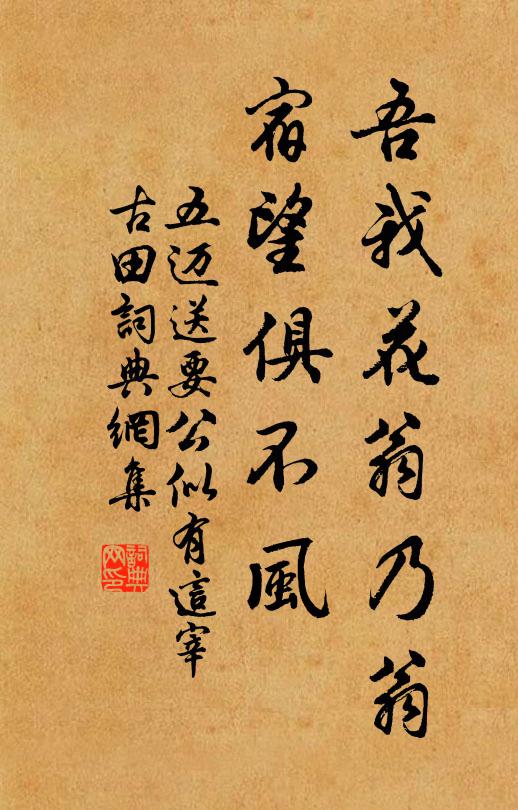 吾我花翁乃翁
宿望俱不風
五迈送要公似有這宰
古田詞典網集
詞典网印